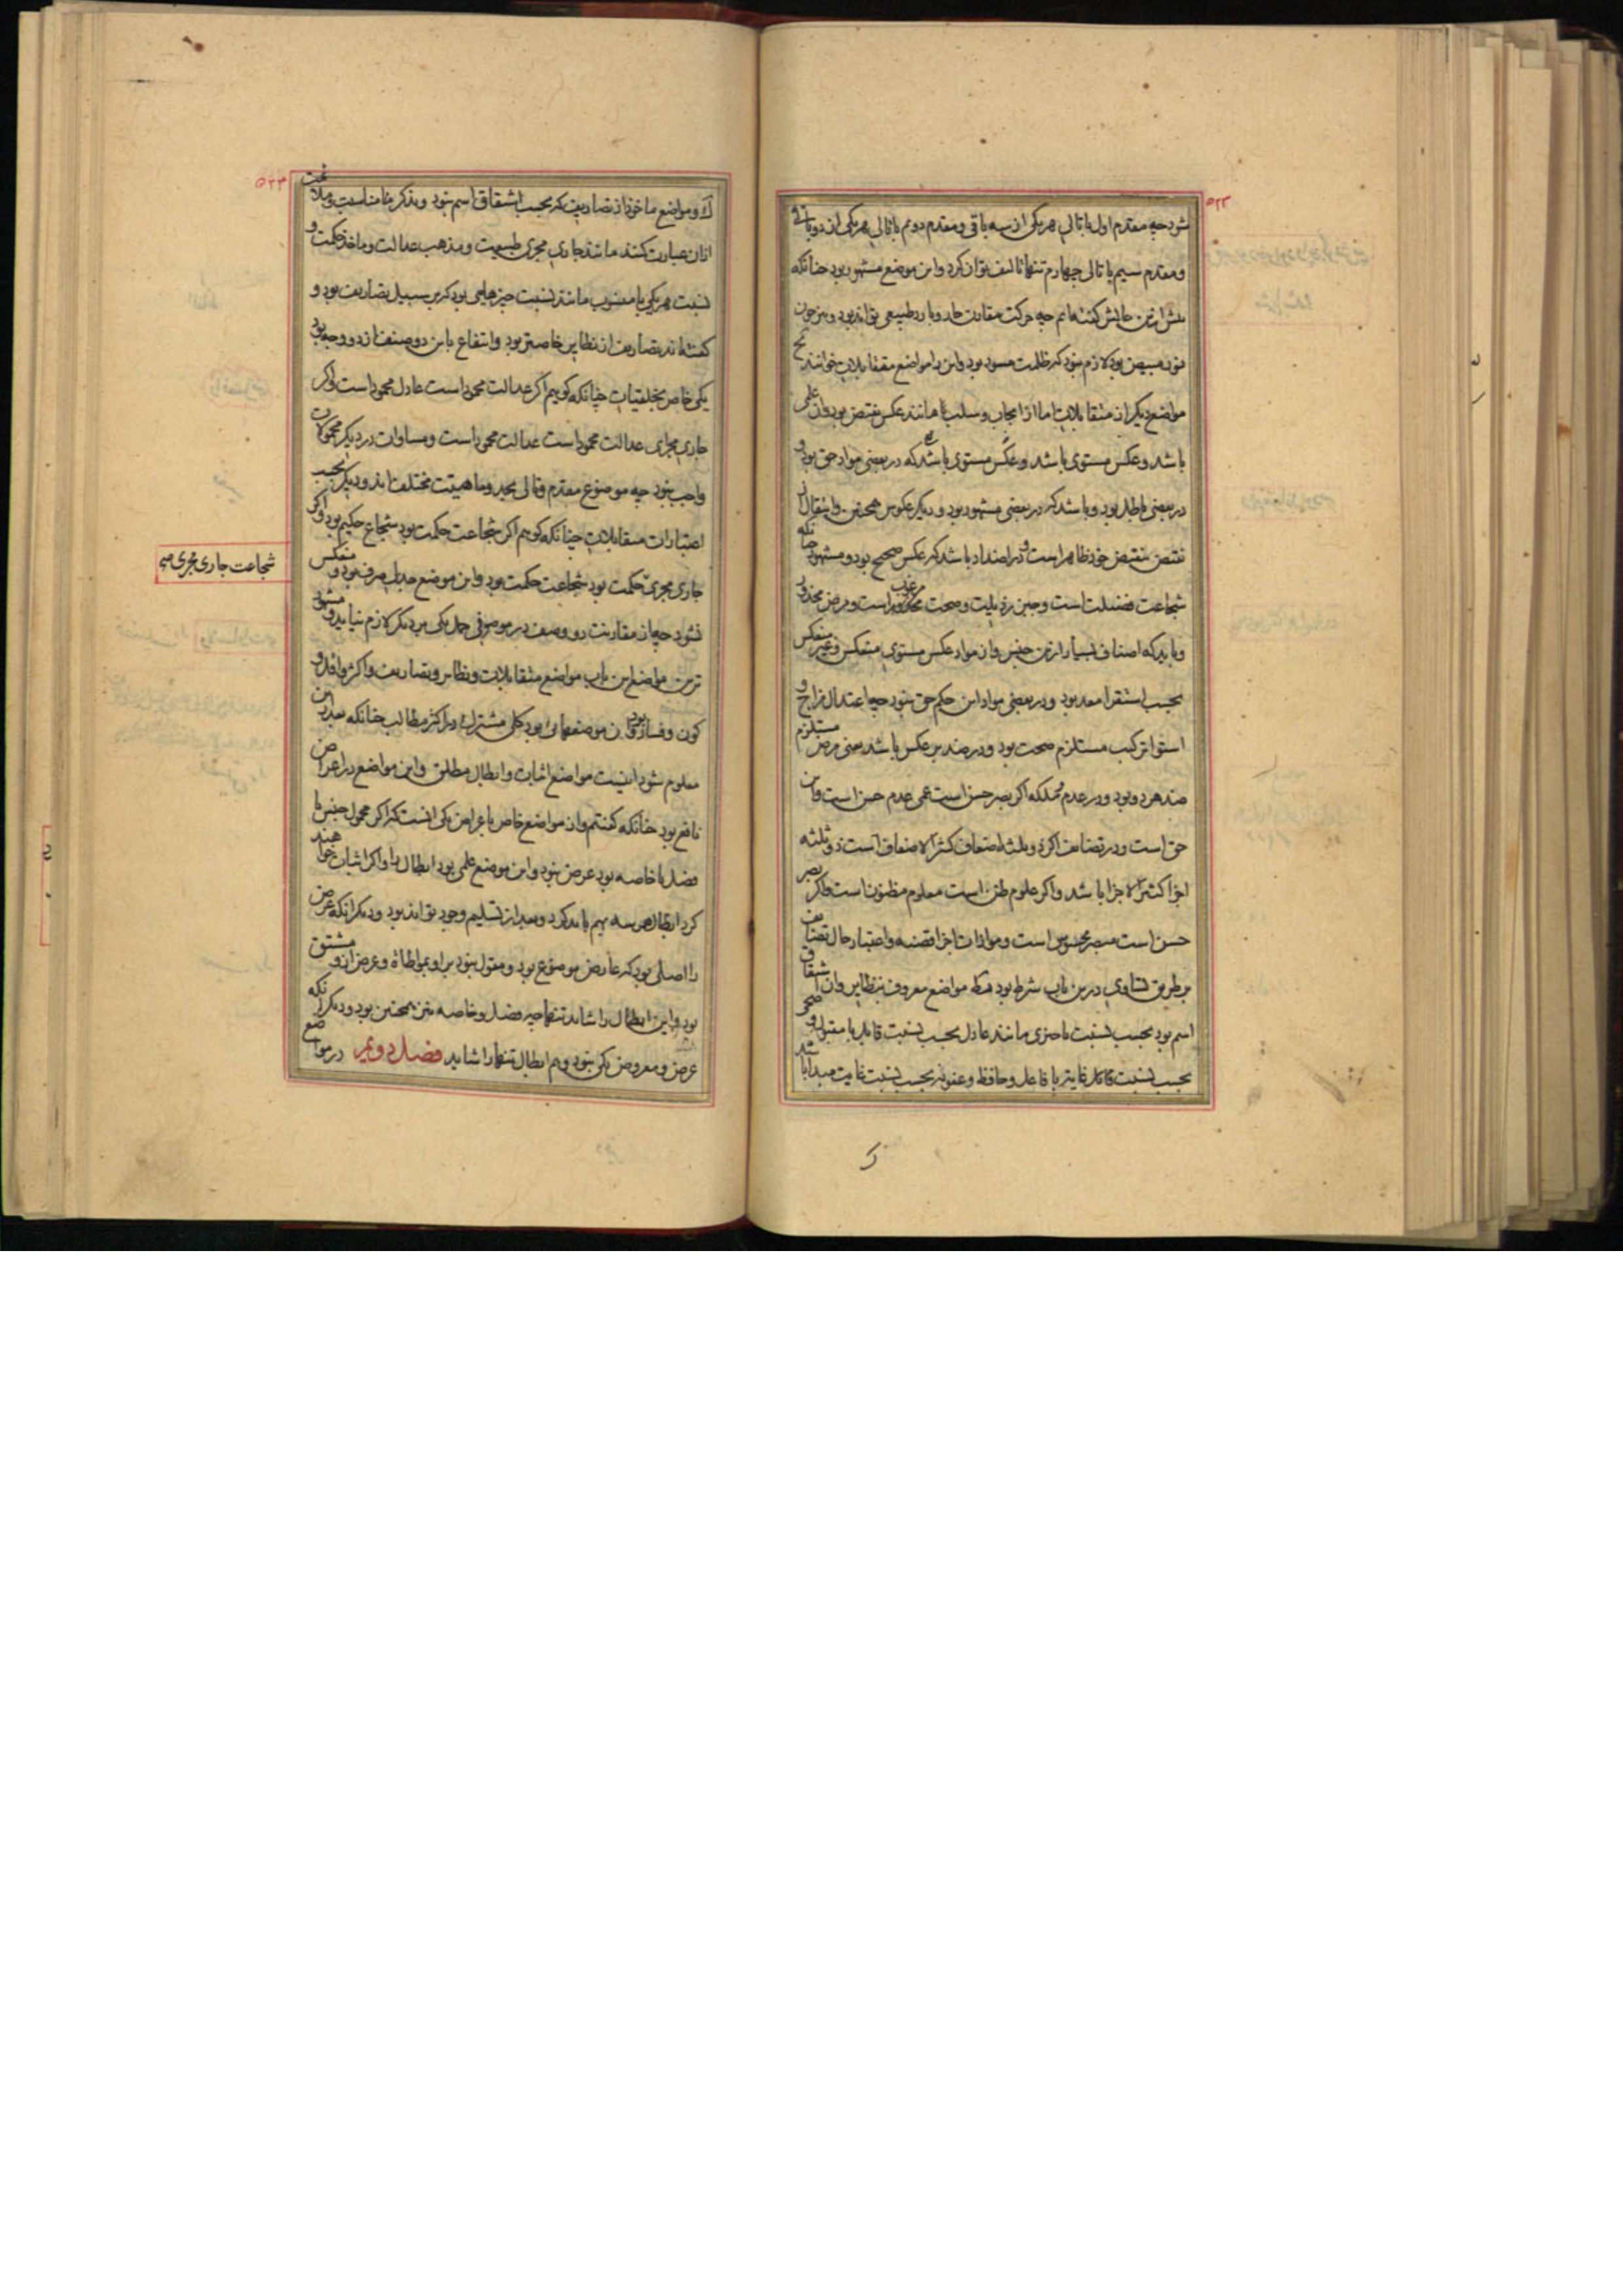 ٥٢٢
شود چه مقدم اول با تالی هر یکی از سه باقی و مقدم دوم با تالی هر یکی از دو باقی
و مقدم سیم با تالی چهارم تنها تالیف توان کرد و این موضع مشهور بود چنانکه
پیش ازین مثالش گفته‌ایم چه حرکت مقارن حار و بارد طبیعی تواند بود و نیز چون
نور مبیض بود لازم نبود که ظلمت مسود بود و این را مواضع متقابلات خوانند
مواضع دیگر از متقابلات اما از ایجاب و سلب مانند عکس نقیض بود و آن علمی
باشد و عکس مستوی باشد و عکس مستوی باشد که در بعضی مواد حق بود و
در بعضی باطل بود و باشد که در بعضی مشهور بود و دیگر عکوس همچنین و انتقال از
نقیض بنقیض خود ظاهر است و در اضداد باشد که عکس صحیح بود و مشهود چنانکه
شجاعت فضیلت است و جبن رذیلت و صحت مرغوب است و مرض محذور
و باید که اصناف بسیار ازین جنس و از مواد عکس مستوی منعکس و غیر منعکس
بحسب استقرا معد بود و در بعضی مواد این حکم حق نبود چه اعتدال مزاج و
استوا ترکیب مستلزم صحت بود و در ضد بر عکس باشد یعنی مرض مستلزم
ضد هر دو بود و در عدم و ملکه اگر بصر حس است عمی عدم حس است و این
حق است و در تضایف اگر ذو ثلثه اضعاف کثیر الاضعاف است ذو ثلثه
اجزا کثیر الاجزا باشد و اگر علوم ظن است معلوم مظنون است و اگر بصر
حس است مبصر محسوس است و موازات اجزا قضیه و اعتبار حال تضایف
بر طریق تساوی درین باب شرط بود مواضع معروف بنظایر و آن اشتقاق
اسم بود بحسب نسبت با چیزی مانند عادل بحسب نسبت قابل با مقبول و صحی
بحسب نسبت فاعل غایتی با فاعل و حافظ و عفونه بحسب نسبت غایت مبدا باشد
٥٢٣
و مواضع ماخوذ از تصاریف که بحسب اشتقاق اسم نبود و بذکر مناسبت و ملاءمت
ازان عبارت کنند مانند جاری مجری طبیعت و مذهب عدالت و ماخذ حکمت و
نسبت هر یکی با منسوب مانند نسبت چیزهایی بود که بر سبیل تصاریف بود و
گفته‌اند تصاریف از نظایر خاصتر بود و انتفاع باین دو صنف از دو وجه بود
یکی خاص بخلقیات چنانکه گوییم اگر عدالت محمود است عادل محمود است و اگر
جاری مجرای عدالت محمود است عدالت محمود است و مساوات در دیگر محمولات
واجب نبود چه موضوع مقدم و تالی بحد و ماهیت مختلف‌اند و دیگر بحسب
اعتبارات متقابلات چنانکه گوییم اگر شجاعت حکمت بود شجاع حکیم بود و اگر
شجاعت جاری مجری
جاری مجری حکمت بود شجاعت حکمت بود و این موضع جدلی صرف بود و منعکس
نشود چه از مقارنت دو وصف در موصوفی حمل یکی بر دیگر لازم نیاید و مشهور
ترین مواضع این باب مواضع متقابلات و نظایر و تصاریف و اکثر و اقل و
کون و فساد بود و آن موضعهایی بود کلی مشترک در اکثر مطالب چنانکه بعد ازین
معلوم شود اینست مواضع اثبات و ابطال مطلق و این مواضع در اعراض
نافع بود چنانکه گفتیم و از مواضع خاص باعراض یکی آنست که اگر محمول جنس یا
فصل یا خاصه بود عرض نبود و این موضع علمی بود ابطال را و اگر اثبات خواهند
کرد ابطال هر سه بهم باید کرد و بعد از تسلیم وجود تواند بود و دیگر آنکه عرض
را اصلی بود که عارض موضوع بود و مقول نبود برو بمواطاة و عرض ازو مشتق
بود و این ابطال را شاید تنها چه فصل و خاصه نیز همچنین بود و دیگر آنکه
عرض و معروض یکی نبود و هم ابطال تنها را شاید فصل دویم در مواضع